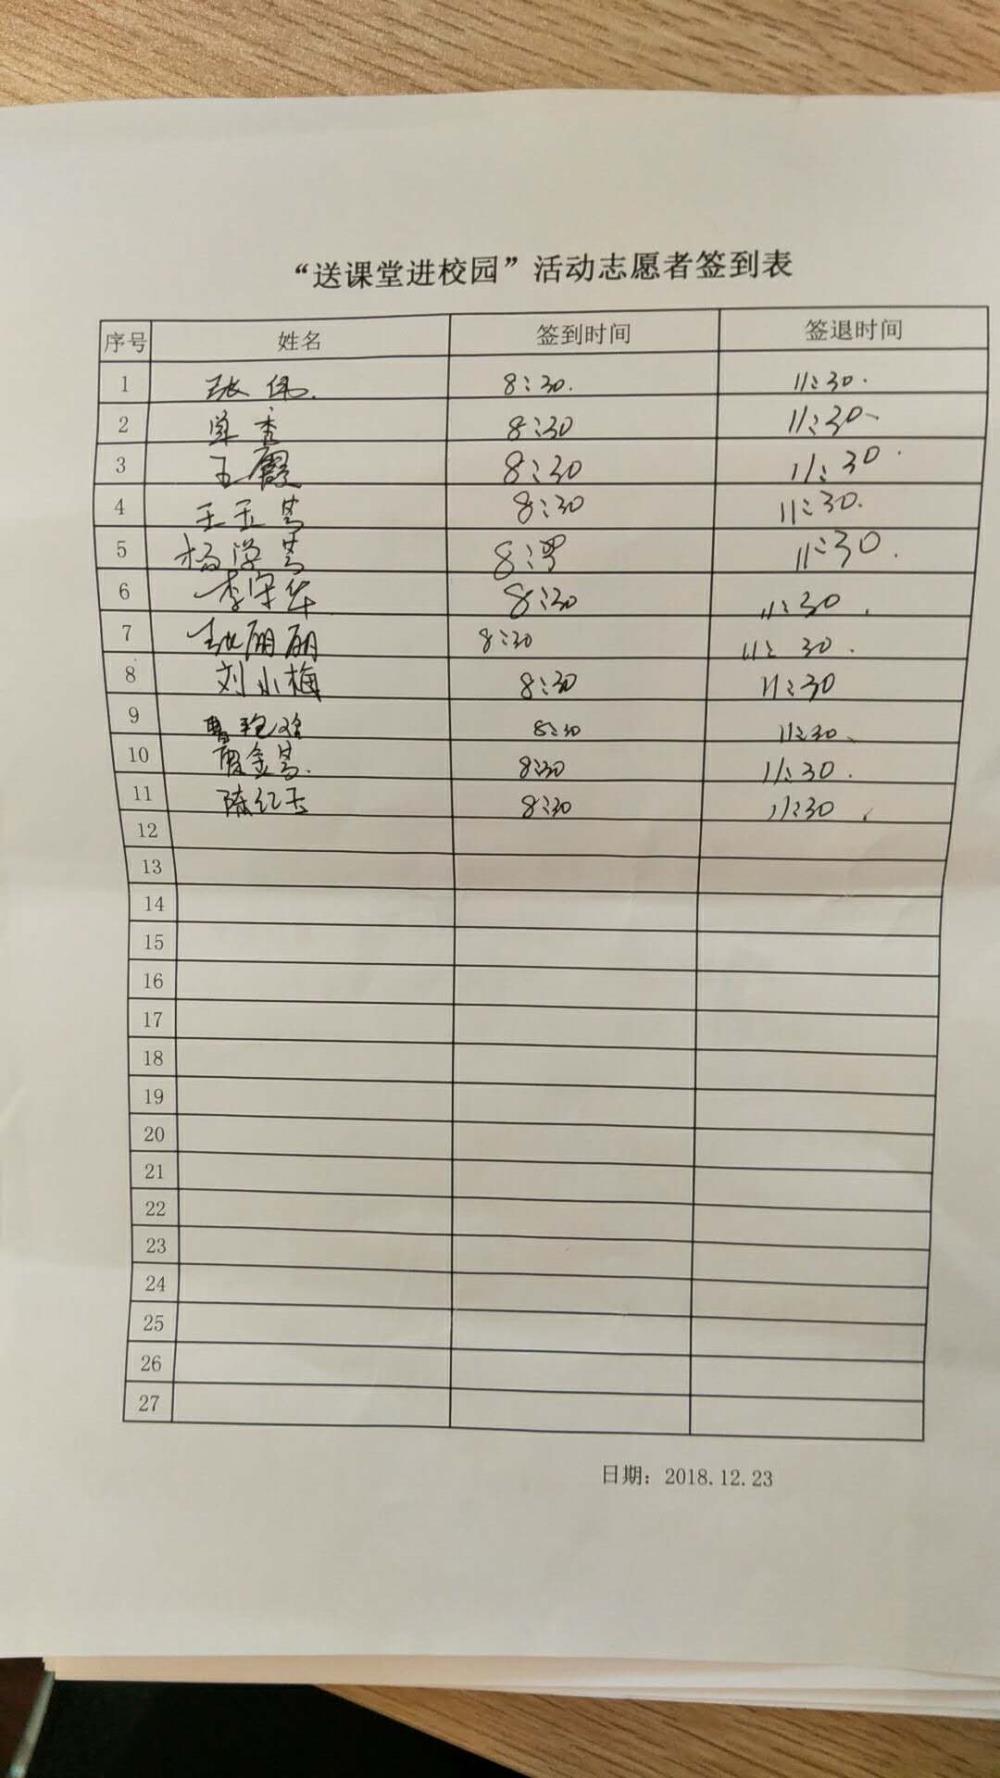 “送课堂进校园”活动志愿者签到表
序号 姓名 签到时间 签退时间
1 张伟. 8:30. 11:30.
2 单秀 8:30 11:30
3 王霞 8:30 11:30.
4 王玉 8:30 11:30.
5 杨学 8: 11:30.
6 李宗华 8:30 11:30.
7 张丽丽 8:30 11:30.
8 刘小梅 8:30 11:30
9 曹 8:30 11:30、
10 金 8:30 11:30.
11 陈红玉 8:30 11:30.
12
13
14
15
16
17
18
19
20
21
22
23
24
25
26
27
日期：2018.12.23